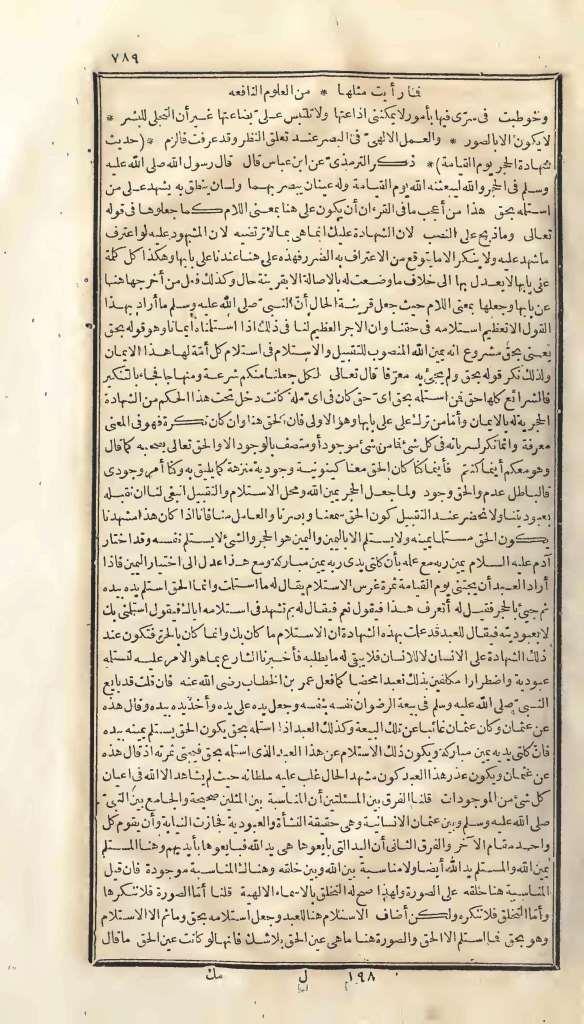 ٧٨٩
فما رأيت مثلها * من العلوم النافعه
وخوطبت في سرّي فيها بأمور لا يمكنني اذاعتها ولا تلتبس عليّ بضاعتها غير أن التجلي للبشر *
لا يكون الا بالصور * والعمل الالهيّ في البصر عند تعلق النظر وقد عرفت فالزم * (حديث
شهادة الحجر يوم القيامة) * ذكر الترمذيّ عن ابن عباس قال قال رسول الله صلى الله عليه
وسلم في الحجر والله ليبعثنه الله يوم القيامة وله عينان يبصر بهما ولسان ينطق به يشهد على من
استلمه بحق هذا من أعجب ما في القرءان أن يكون على هنا بمعنى اللام كما جعلوها في قوله
تعالى وما ذبح على النصب لان الشهادة عليك انما هي بما لا ترتضيه لان المشهود عليه لو اعترف
ما شهد عليه ولا ينكر الا ما يتوقع من الاعتراف به الضرر فهذه على هنا عندنا على بابها وهكذا كل كلمة
على بابها لا يعدل بها الى خلاف ما وضعت له بالاصالة الا بقرينة حال وكذلك فعل من أخرجها هنا
عن بابها وجعلها بمعنى اللام حيث جعل قرينة الحال أنّ النبيّ صلى الله عليه وسلم ما أراد بهذا
القول الا تعظيم استلامه في حقنا وان الاجر العظيم لنا في ذلك اذا استلمناه ايمانا وهو قوله بحق
يعني بحق مشروع انه يمين الله المنصوب للتقبيل والاستلام في استلام كل أمّة لها هذا الايمان
ولذلك نكر قوله بحق ولم يجئ به معرّفا قال تعالى لكل جعلنا منكم شرعة ومنهاجا فجاء بالتنكير
فالشرائع كلها حق فمن استلمه بحق أيّ حق كان في أيّ ملة كانت دخل تحت هذا الحكم من الشهادة
الحجرية له بالايمان وأمّا من ترك على على بابها وهو الاولى فان الحق هنا وان كان نكرة فهو في المعنى
معرفة وانما نكر لسريانه في كل شئ فما من شئ موجود أو متصف بالوجود الا والحق تعالى يصحبه كما قال
وهو معكم أينما كنتم فأينما كنا كان الحق معنا كينونية وجودية منزهة كما يليق به وكنا أمر وجودي
فالباطل عدم والحق وجود ولما جعل الحجر يمين الله ومحل الاستلام والتقبيل انبغى لنا ان نقبله
بعبوديتنا ولا نحضر عند التقبيل كون الحق سمعنا وبصرنا والعامل منا فانا اذا كان هذا مشهدنا
يكون الحق مستلما يمينه ولا يستلم الا باليمين واليمين هو الحجر والشئ لا يستلم نفسه وقد اختار
آدم عليه السلام يمين ربه مع علمه بأن كلتي يدي ربه يمين مباركة ومع هذا عدل الى اختيار اليمين فاذا
أراد العبد أن يجتني يوم القيامة ثمرة غرس الاستلام يقال له ما استلمت وانما الحق استلم يده بيده
ثم جيئ بالحجر فقيل له أتعرف هذا فيقول نعم فيقال له بم تشهد في استلامه اياك فيقول استلمني بك
لا بعبوديته فيقال للعبد قد علمت بهذه الشهادة ان الاستلام ما كان بك وانما كان بالحق فتكون عند
ذلك الشهادة على الانسان لا للانسان فلا يبقى له ما يطلبه فأخبرنا الشارع بما هو الامر عليه لنستلمه
عبودية واضطرارا مكلفين بذلك تعبدا محضا كما فعل عمر بن الخطاب رضي الله عنه فان قلت قد بايع
النبيّ صلى الله عليه وسلم في بيعة الرضوان نفسه بنفسه وجعل يده على يده وأخذ يده بيده وقال هذه
عن عثمان وكان عثمان غائبا عن تلك البيعة وكذلك العبد اذا استلمه بحق يكون الحق يستلم يمينه بيده
فانّ كلتي يديه يمين مباركة ويكون ذلك الاستلام عن هذا العبد الذي استلمه بحق فيجتني ثمرته اذ قال هذه
عن عثمان ويكون عذر هذا العبد كون مشهد الحال غلب عليه سلطانه حيث لم يشاهد الا الله في اعيان
كل شئ من الموجودات قلنا الفرق بين المسئلتين أن المناسبة بين المثلين صحيحة والجامع بين النبيّ
صلى الله عليه وسلم وبين عثمان الانسانية وهي حقيقة النشأة والعبودية فجازت النيابة وأن يقوم كل
واحد مقام الآخر والفرق الثاني أن اليد التي بايعوها هي يد الله فبايعوها بأيديهم وهنا المستلم
يمين الله والمستلم يد الله أيضا ولا مناسبة بين الله وبين خلقه وهناك المناسبة موجودة فان قيل
المناسبة هنا خلقه على الصورة ولهذا صح له التخلق بالاسماء الالهية قلنا أمّا الصورة فلا تنكرها
وأمّا التخلق فلا تنكره ولكن أضاف الاستلام هنا للعبد وجعل استلامه بحق وما ثم الا الاستلام
وهو بحق فما استلم الا الحق والصورة هنا ما هي عين الحق بلا شك فانها لو كانت عين الحق ما قال
١٩٨ ل مك